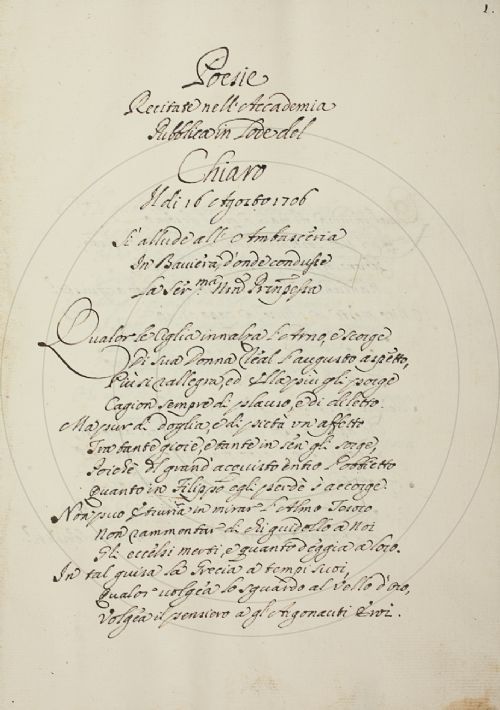 1.
Poesie
Recitate nell'Accademia
Pubblica in Lode del
Chiaro
Il dì 16 Agosto 1706
Si allude all'Ambasceria
In Baviera, d'onde condusse
La Ser.ma Nra Prinpessa
Qualor le Ciglia innalza l'Arno, e scorge
Di sua Donna Real l'augusto aspetto,
Più si rallegra, ed Ella più gli porge
Cagion sempre di plauso, e di diletto.
Ma pur di doglia, e di pietà un affetto
Tra tante gioie, e tante in sen gli sorge,
Poichè il grand'acquisto entro l'obbietto
Quanto in Filippo egli perdè s'accorge.
Non può Etruria in mirar l'Almo Tesoro
Non rammentar di chi guidollo a noi
Gli eccelsi merti, e quanto deggia a loro.
In tal guisa la Grecia a tempi suoi,
Qualor volgea lo sguardo al Vello d'oro,
Volgea il pensiero a gli Argonauti Eroi.